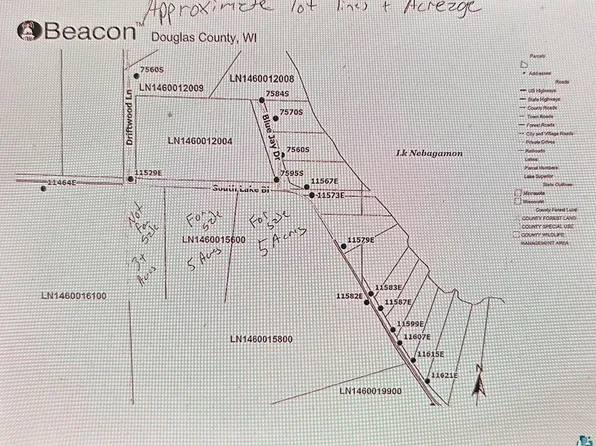 Approximate lot lines + Acreage
Beacon™ Douglas County, WI
7560S
LN1460012009
LN1460012008
7584S
7570S
Driftwood Ln
LN1460012004
Blue Jay Dr
7560S
Lk Nebagamon
11529E
7595S
11464E
South Lake Bl
11567E
11573E
Not
For
Sale
3+
Acres
For
Sale
5 Acres
For
Sale
5 Acres
LN1460015600
11579E
LN1460016100
11583E
11582E
11587E
11599E
LN1460015800
11607E
11615E
11621E
LN1460019900
N
Parcels
Addresses
Roads
US Highways
State Highways
County Roads
Town Roads
Forest Roads
City and Village Roads
Private Drives
Railroads
Lakes
Parcel Numbers
Lake Superior
State Outlines
Minnesota
Wisconsin
County Forest Land
COUNTY FOREST LAND
COUNTY SPECIAL USE
COUNTY WILDLIFE
MANAGEMENT AREA